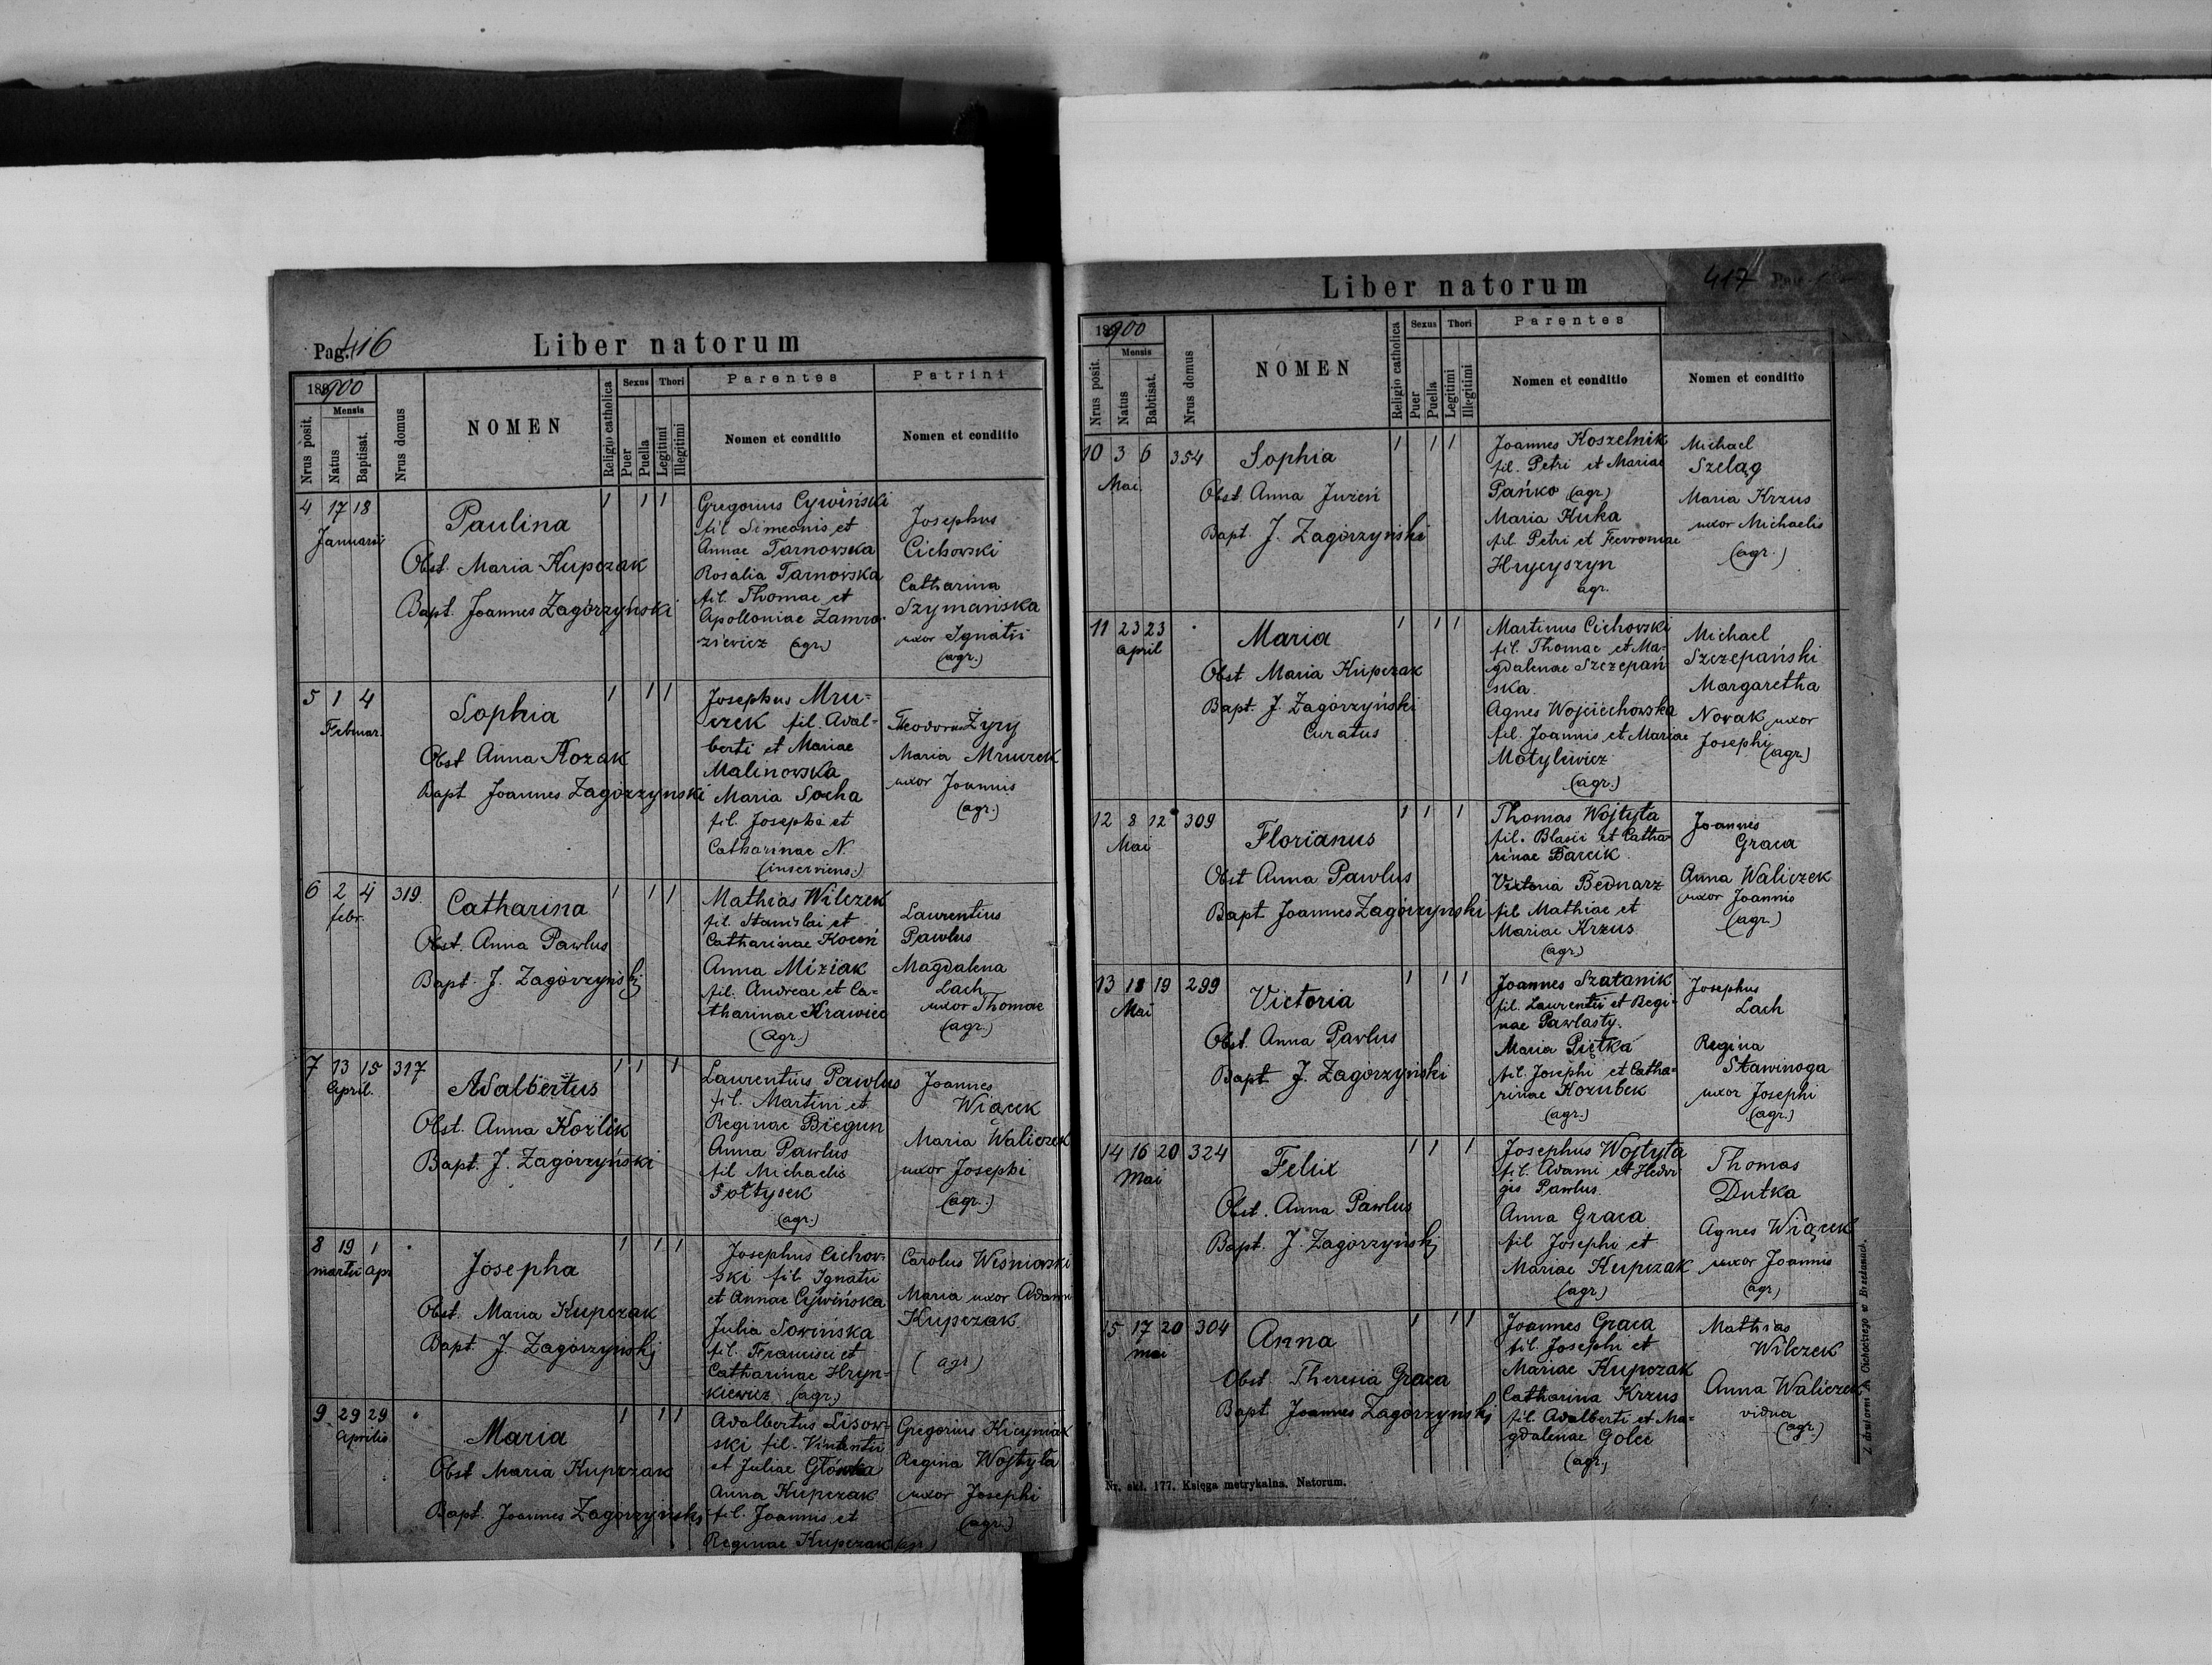 Pag. 416
Liber natorum
1900
Nrus posit.
Mensis
Natus
Baptisat.
Nrus domus
NOMEN
Religio catholica
Sexus
Puer
Puella
Thori
Legitimi
Illegitimi
Parentes
Nomen et conditio
Patrini
Nomen et conditio
4 17 18
Januarii
Paulina
Obst. Maria Kupczak
Bapt. Joannes Zagórzyński
1 1 1
Gregorius Cywiński
fil Simeonis et
Annae Tarnowska
Rosalia Tarnowska
fil. Thomae et
Apolloniae Zamro-
ziewicz (agr.)
Josephus
Cichowski
Catharina
Szymańska
uxor Ignatii
(agr.)
5 1 4
Februar.
Sophia
Obst Anna Kozak
Bapt Joannes Zagórzyński
1 1 1
Josephus Mru-
czek fil. Adal-
berti et Mariae
Malinowska
Maria Socha
fil. Josephi et
Catharinae N.
(inserviens.)
Theodorus Żyry
Maria Mruczek
uxor Joannis
(agr.)
6 2 4 319.
febr.
Catharina
Obst. Anna Pawlus
Bapt. J. Zagórzyński
1 1 1
Mathias Wilczek
fil. Stanislai et
Catharinae Kocoń
Anna Miziak
fil. Andreae et Ca-
tharinae Krawiec
(agr.)
Laurentius
Pawlus
Magdalena
Lach
uxor Thomae
(agr.)
7 13 15 317
April.
Adalbertus
Obst. Anna Koźlik
Bapt. J. Zagórzyński
1 1 1
Laurentius Pawlus
fil. Martini et
Reginae Biegun
Anna Pawlus
fil Michaelis
Sołtysek
(agr.)
Joannes
Wiącek
Maria Waliczek
uxor Josephi
(agr.)
8 19 1
martii apr
Josepha
Obst. Maria Kupczak
Bapt. J. Zagórzyński
1 1 1
Josephus Cichow-
ski fil Ignatii
et Annae Cywińska
Julia Sowińska
fil. Francisci et
Catharinae Hryn-
kiewicz (agr.)
Carolus Wiśniowski
Maria uxor Adami
Kupczak
(agr)
9 29 29
Aprilis
Maria
Obst Maria Kupczak
Bapt. Joannes Zagórzyński
1 1 1
Adalbertus Lisow-
ski fil. Vincentii
et Juliae Głowka
Anna Kupczak
fil. Joannis et
Reginae Kupczak (agr.)
Gregorius Kicyniak
Regina Wojtyła
uxor Josephi
(agr.)
417
Liber natorum
1900
Nrus posit.
Mensis
Natus
Babtisat.
Nrus domus
NOMEN
Religio catholica
Sexus
Puer
Puella
Thori
Legitimi
Illegitimi
Parentes
Nomen et conditio
Nomen et conditio
10 3 6 354
Mai.
Sophia
Obst. Anna Jureń
Bapt. J. Zagórzyński
1 1 1
Joannes Koszelnik
fil. Petri et Mariae
Pańko (agr)
Maria Kuka
fil Petri et Fevroniae
Hrycyszyn
agr.
Michael
Szeląg
Maria Krzus
uxor Michaelis
(agr.)
11 23 23
April
Maria
Obst Maria Kupczak
Bapt. J. Zagórzyński
Curatus
1 1 1
Martinus Cichowski
fil. Thomae et Ma-
gdalenae Szczepań
ska.
Agnes Wojciechowska
fil. Joannis et Mariae
Motylewicz
(agr.)
Michael
Szczepański
Margaretha
Nowak uxor
Josephi (agr.)
12 8 12 309
Mai
Florianus
Obst Anna Pawlus
Bapt Joannes Zagórzyński
1 1 1
Thomas Wojtyła
fil. Blasii et Catha-
rinae Barcik.
Victoria Bednarz
fil Mathiae et
Mariae Krzus
(agr.)
Joannes
Graca
Anna Waliczek
uxor Joannis
(agr.)
13 18 19 299
Mai
Victoria
Obst. Anna Pawlus
Bapt. J. Zagórzyński
1 1 1
Joannes Szatanik
fil. Laurentii et Regi-
nae Pawlasty.
Maria Piętka
fil. Josephi et Catha-
rinae Kozubek
(agr.)
Josephus
Lach
Regina
Stawinoga
uxor Josephi
(agr.)
14 16 20 324
Mai
Felix
Obst. Anna Pawlus
Bapt. J. Zagórzyński
1 1 1
Josephus Wojtyła
fil. Adami et Hedvi-
gis Pawlus.
Anna Graca
fil Josephi et
Mariae Kupczak
(agr)
Thomas
Dutka
Agnes Wiącek
uxor Joannis
(agr)
15 17 20 304
mai
Anna
Obst Theresia Graca
Bapt Joannes Zagórzyński
1 1 1
Joannes Graca
fil. Josephi et
Mariae Kupczak
Catharina Krzus
fil. Adalberti et Ma-
gdalenae Golec
(agr.)
Mathias
Wilczek
Anna Waliczek
vidua
(agr.)
Nr. skł. 177. Księga metrykalna. Natorum.
Z drukarni A. Cichockiego w Brzeżanach.